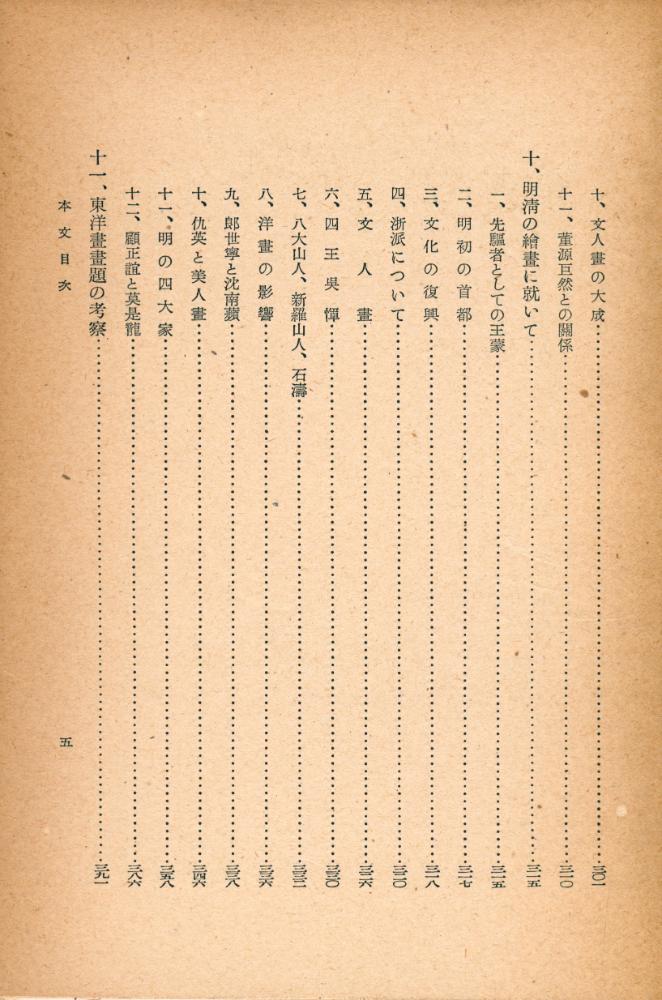 十、文人畫の大成……三〇一
十一、董源巨然との關係……三一〇
十、明清の繪畫に就いて……三一五
一、先驅者としての王蒙……三一五
二、明初の首都……三一七
三、文化の復興……三一八
四、浙派について……三二〇
五、文人畫……三二六
六、四王吳惲……三三〇
七、八大山人、新羅山人、石濤……三三三
八、洋畫の影響……三三六
九、郎世寧と沈南蘋……三三八
十、仇英と美人畫……三四六
十一、明の四大家……三五八
十二、顧正誼と莫是龍……三八六
十一、東洋畫畫題の考察……三九一
本文目次
五